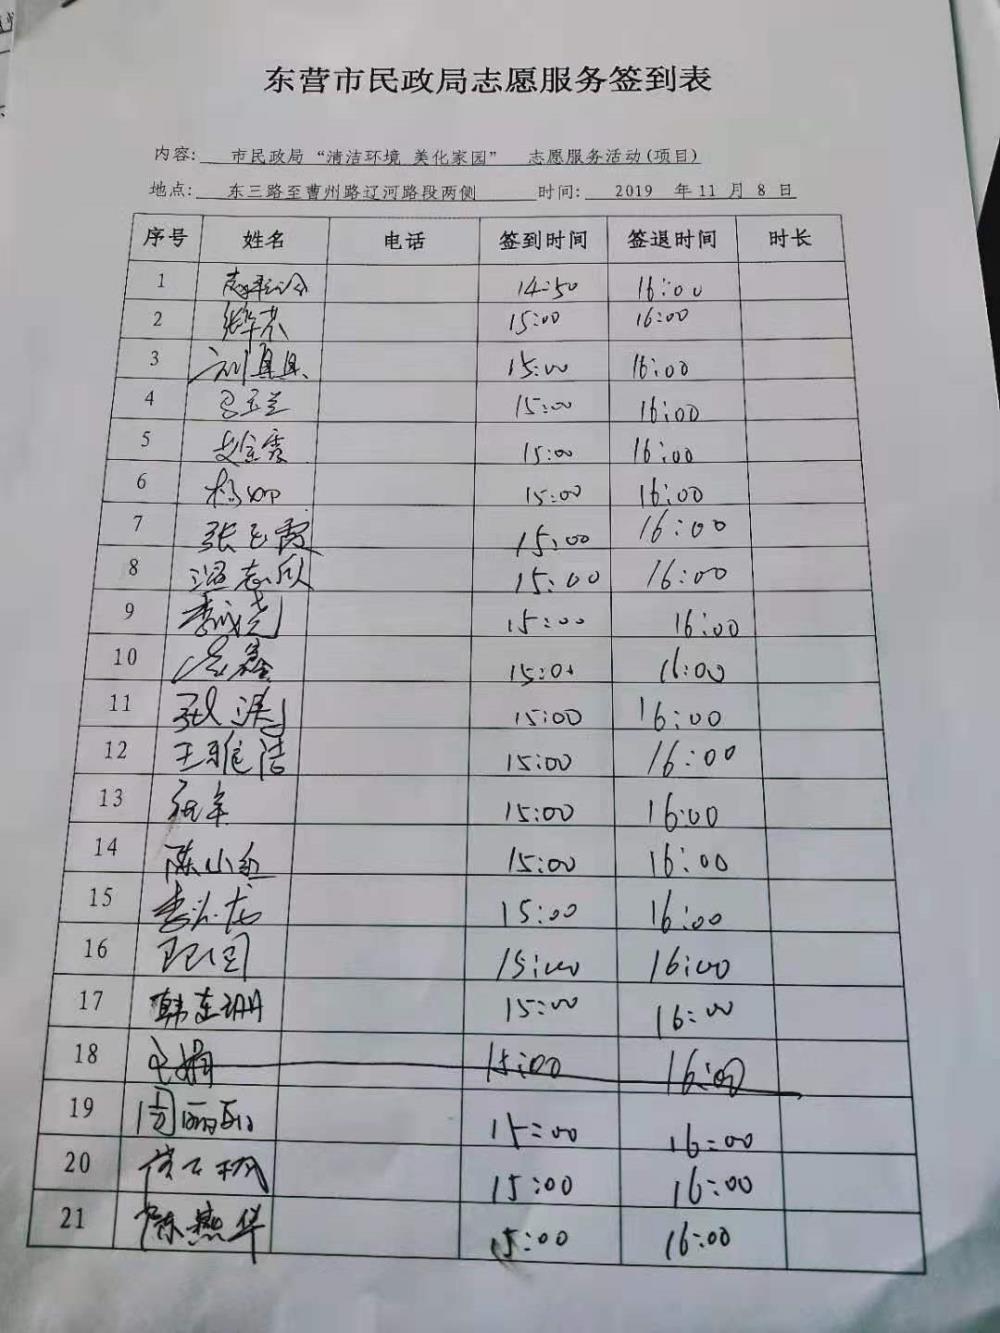 东营市民政局志愿服务签到表
内容: 市民政局“清洁环境 美化家园” 志愿服务活动(项目)
地点: 东三路至曹州路辽河路段两侧 时间: 2019 年 11 月 8 日
序号 姓名 电话 签到时间 签退时间 时长
1 14:50 16:00
2 15:00 16:00
3 15:00 16:00
4 15:00 16:00
5 15:00 16:00
6 15:00 16:00
7 张玉霞 15:00 16:00
8 温志欣 15:00 16:00
9 15:00 16:00
10 15:00 16:00
11 张涛 15:00 16:00
12 王雅洁 15:00 16:00
13 张军 15:00 16:00
14 陈小红 15:00 16:00
15 15:00 16:00
16 15:00 16:00
17 韩莲珊 15:00 16:00
18 15:00 16:00
19 15:00 16:00
20 15:00 16:00
21 陈燕华 15:00 16:00